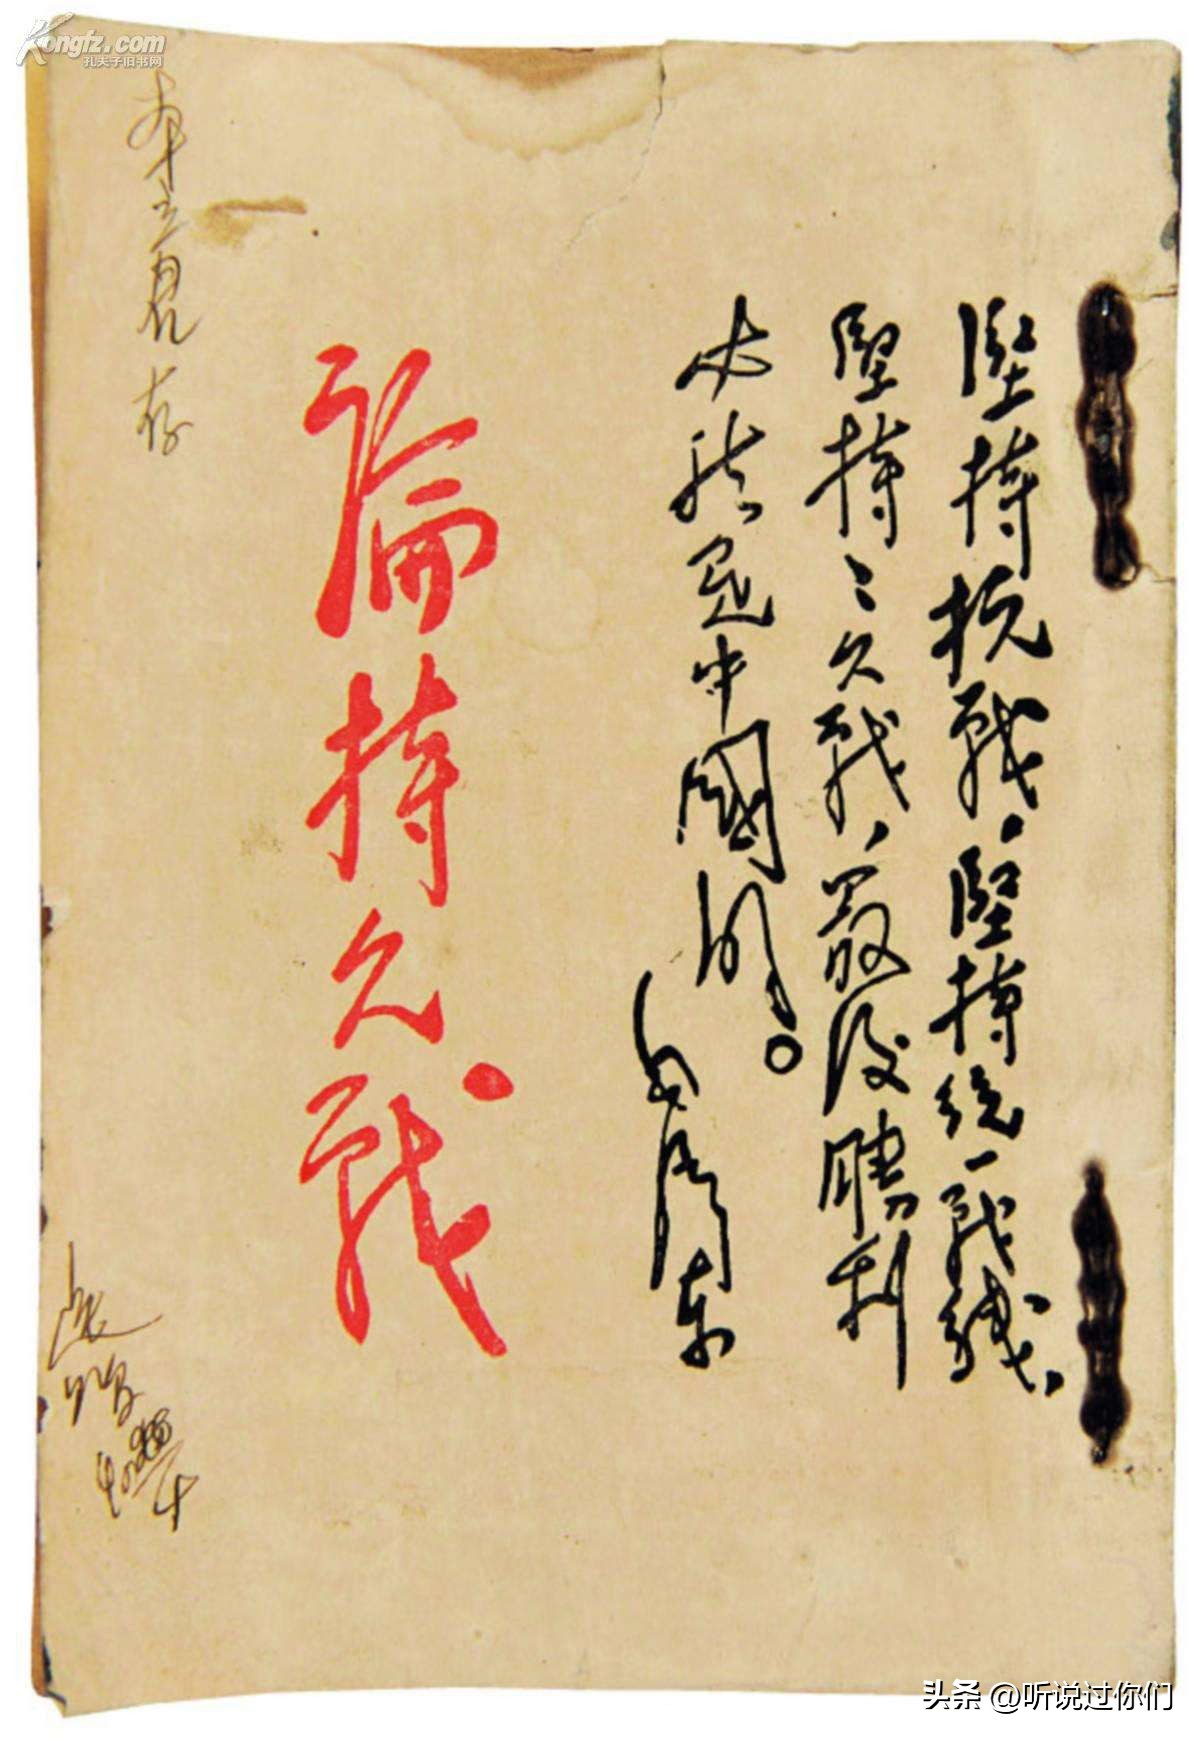 Kongfz.com
孔夫子旧书网
堅持抗戰、堅持統一戰綫、
堅持持久戰、最後勝利
必然是中國的。
毛澤東
論持久戰
存
头条 @听说过你们